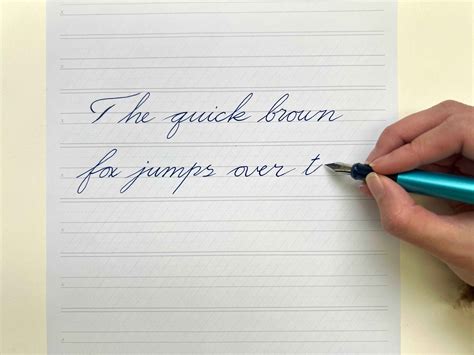 The quick brown
fox jumps over t